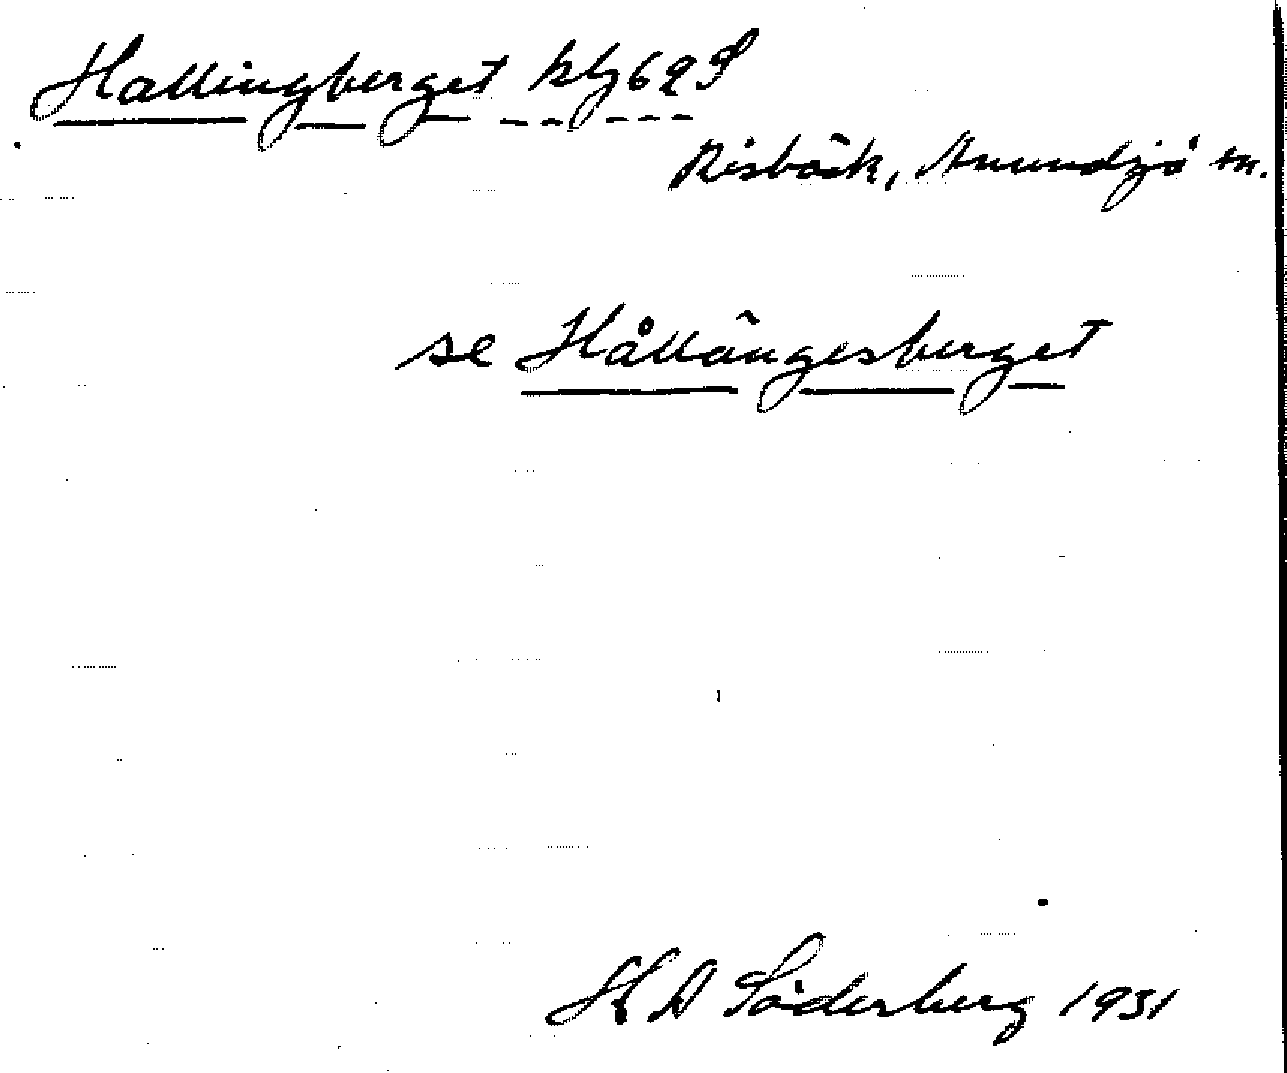 Hallingberget klj 62 S
Risbäck, Anundsjö sn.
se Hållängesberget
K A Söderberg 1931